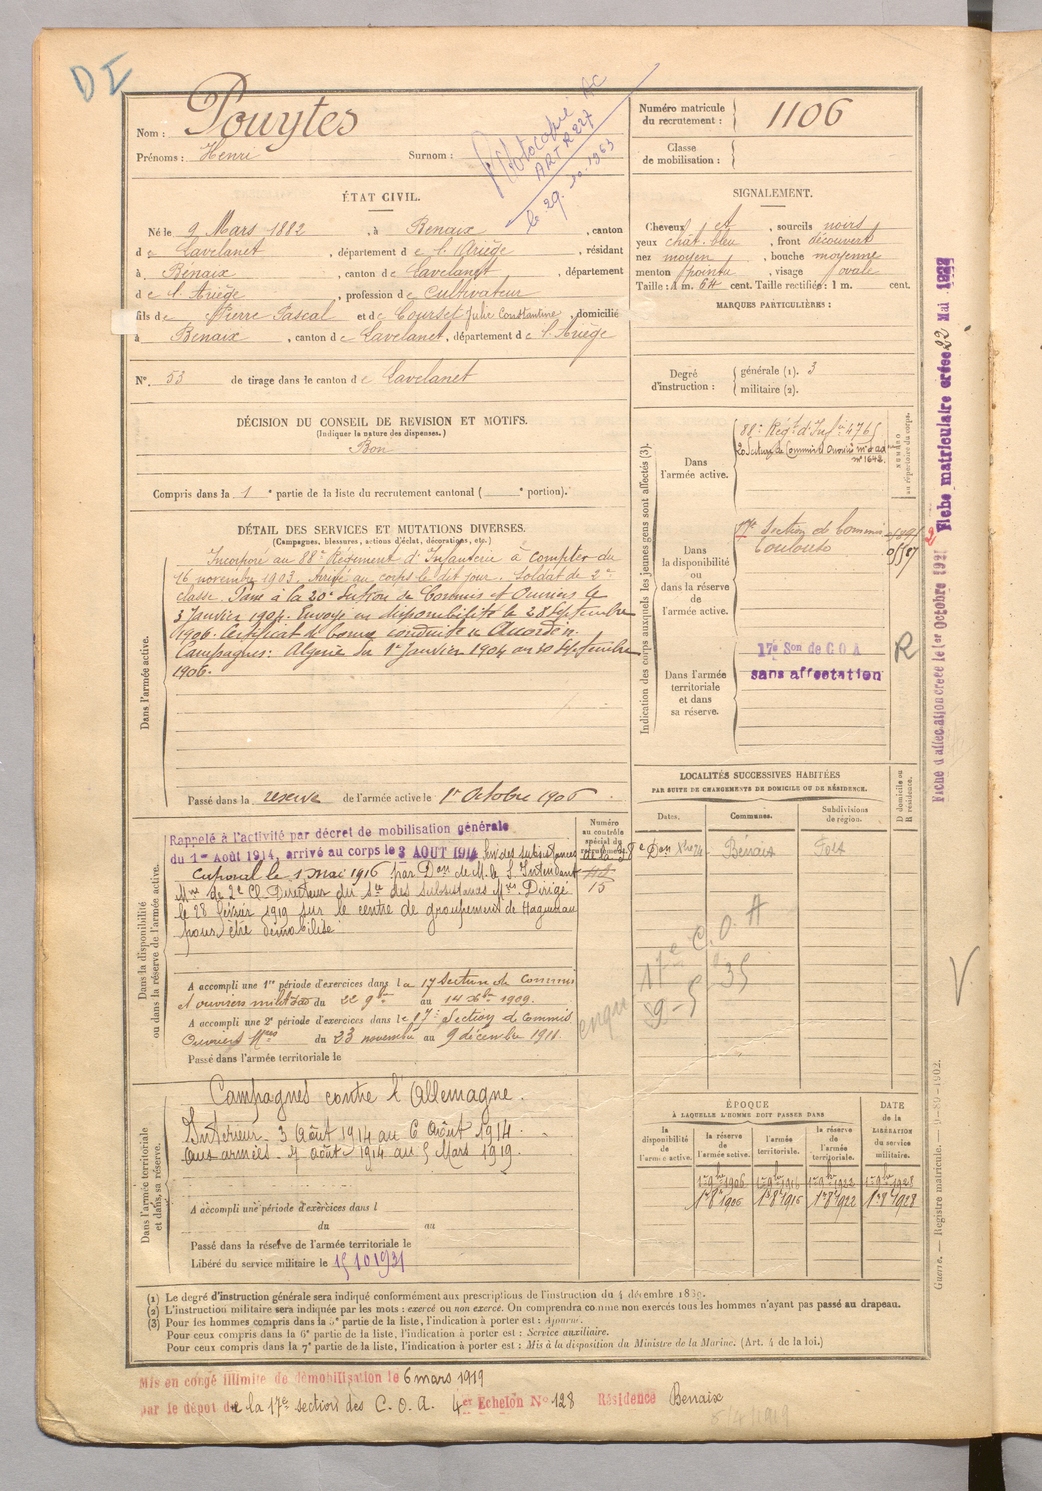 DI
Nom : Pouytes
Prénoms : Henri Surnom :
Photocopie AC
ART R 227
le 29. 10. 1963
Numéro matricule du recrutement : 1106
Classe de mobilisation :
ÉTAT CIVIL.
Né le 9 Mars 1882, à Benaix, canton
de Lavelanet, département de l'Ariège, résidant
à Bénaix, canton de Lavelanet, département
de l'Ariège, profession de Cultivateur
fils de Pierre Pascal et de Courset Julie Constantine, domicilié
à Benaix, canton de Lavelanet, département de l'Ariège
N° 53 de tirage dans le canton de Lavelanet
SIGNALEMENT.
Cheveux et, sourcils noirs
yeux chât. bleu, front découvert
nez moyen, bouche moyenne
menton pointu, visage ovale
Taille : 1 m. 64 cent. Taille rectifiée : 1 m. cent.
MARQUES PARTICULIÈRES :
Degré d'instruction : générale (1). 3
militaire (2).
DÉCISION DU CONSEIL DE REVISION ET MOTIFS.
(Indiquer la nature des dispenses.)
Bon
Compris dans la 1e partie de la liste du recrutement cantonal ( e portion).
DÉTAIL DES SERVICES ET MUTATIONS DIVERSES.
(Campagnes, blessures, actions d'éclat, décorations, etc.)
Dans l'armée active.
Incorporé au 88e Régiment d'Infanterie à compter du
16 novembre 1903. Arrivé au corps le dit jour. Soldat de 2e
classe. Passé à la 20e Section de Commis et Ouvriers le
3 Janvier 1904. Envoyé en disponibilité le 28 Septembre
1906. Certificat de bonne conduite " Accordé ".
Campagnes : Algérie du 1er Janvier 1904 au 30 Septembre
1906.
Passé dans la réserve de l'armée active le 1er Octobre 1906
Indication des corps auxquels les jeunes gens sont affectés (3).
NUMÉRO au répertoire du corps.
Dans l'armée active.
88e Régt d'Infie 4765
20e Section de Commis et Ouvriers
no 1642
Dans la disponibilité ou dans la réserve de l'armée active.
17e Section de Commis
Toulouse
Dans l'armée territoriale et dans sa réserve.
17e Son de COA
sans affectation
R
Dans la disponibilité ou dans la réserve de l'armée active.
Rappelé à l'activité par décret de mobilisation générale
du 1er Août 1914, arrivé au corps le 3 AOUT 1914
Caporal le 1 mai 1916 par Don de M. le S. Intendant
Mre de 2e Cl. Directeur du Sce des Subsistances Mres. Dirigé
le 28 février 1919 sur le centre de groupement de Haguenau
pour être démobilisé.
Numéro au contrôle spécial du recrutement.
15
A accompli une 1re période d'exercices dans la 17 Section de Commis
et ouvriers militaires du 22 9bre au 14 Xbre 1909.
A accompli une 2e période d'exercices dans le 17e Section de Commis
Ouvriers Mres du 23 novembre au 9 décembre 1911.
Passé dans l'armée territoriale le
LOCALITÉS SUCCESSIVES HABITÉES
PAR SUITE DE CHANGEMENTS DE DOMICILE OU DE RÉSIDENCE.
Dates. Communes. Subdivisions de région. D domicile ou R résidence.
Bénaix Foix
17e C.O.A
9-5 35
enqu
V
Dans l'armée territoriale et dans sa réserve.
Campagnes contre l'Allemagne.
Intérieur - 3 Août 1914 au 6 Août 1914.
Aux armées - 7 août 1914 au 5 Mars 1919.
A accompli une période d'exercices dans l
du au
Passé dans la réserve de l'armée territoriale le
Libéré du service militaire le 15 10 1931
ÉPOQUE
À LAQUELLE L'HOMME DOIT PASSER DANS
DATE de la LIBÉRATION du service militaire.
la disponibilité de l'armée active. la réserve de l'armée active. l'armée territoriale. la réserve de l'armée territoriale.
1er 9bre 1906 1er 9bre 1916 1er 9bre 1922 1er 9bre 1928
1er 8bre 1906 1er 8bre 1916 1er 8bre 1922 1er 8bre 1928
(1) Le degré d'instruction générale sera indiqué conformément aux prescriptions de l'instruction du 4 décembre 1889.
(2) L'instruction militaire sera indiquée par les mots : exercé ou non exercé. On comprendra comme non exercés tous les hommes n'ayant pas passé au drapeau.
(3) Pour les hommes compris dans la 5e partie de la liste, l'indication à porter est : Ajourné.
Pour ceux compris dans la 6e partie de la liste, l'indication à porter est : Service auxiliaire.
Pour ceux compris dans la 7e partie de la liste, l'indication à porter est : Mis à la disposition du Ministre de la Marine. (Art. 4 de la loi.)
Mis en congé illimité de démobilisation le 6 mars 1919
par le dépôt de la 17e section des C. O. A. 4er Echelon No 128 Résidence Benaix
8/4/1919
Fiche d'affectation créée le 1er Octobre 1921
Fiche matriculaire créée 22 Mai 1922
Guerre. — Registre matricule. — 9-89-1902.